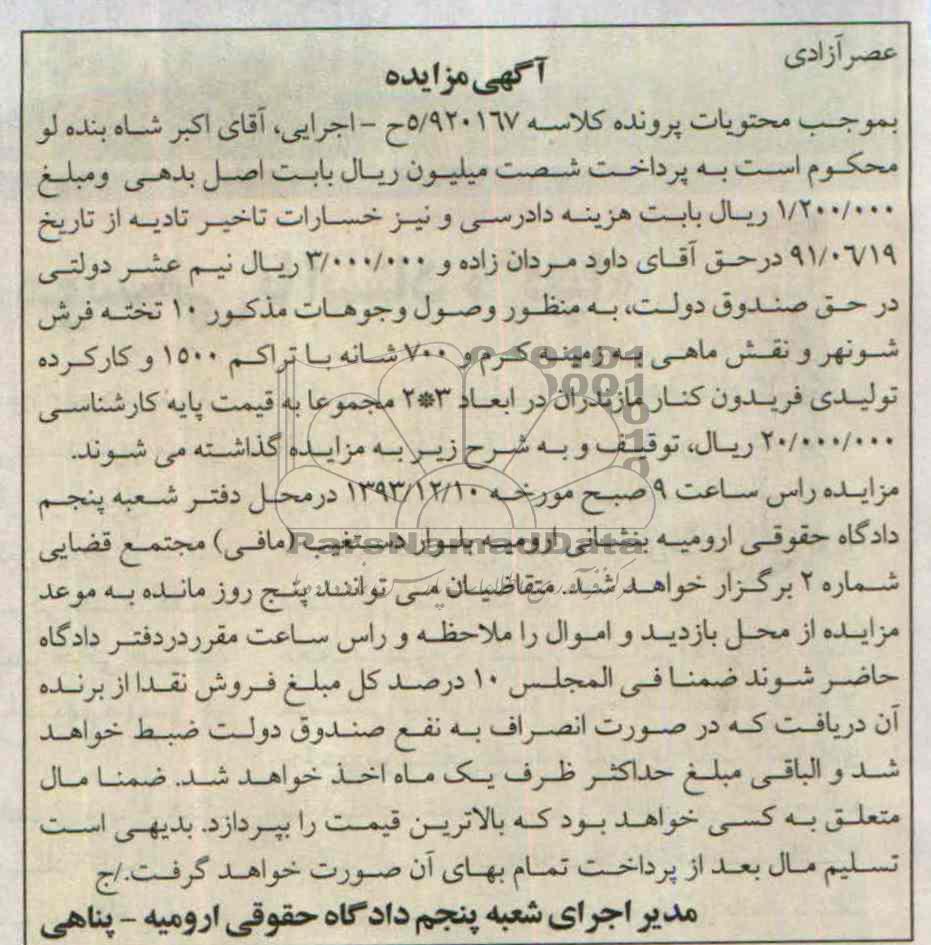 عصر آزادی
آگهی مزایده
بموجب محتویات پرونده کلاسه ۵/۹۲۰۱۶۷ح - اجرایی، آقای اکبر شاه بنده لو
محکوم است به پرداخت شصت میلیون ریال بابت اصل بدهی ومبلغ
۱/۲۰۰/۰۰۰ ریال بابت هزینه دادرسی و نیز خسارات تاخیر تادیه از تاریخ
۹۱/۰۶/۱۹ درحق آقای داود مردان زاده و ۳/۰۰۰/۰۰۰ ریال نیم عشر دولتی
در حق صندوق دولت، به منظور وصول وجوهات مذکور ۱۰ تخته فرش
شونهر و نقش ماهی به زمینه کرم و ۷۰۰ شانه با تراکم ۱۵۰۰ و کارکرده
تولیدی فریدون کنار مازندران در ابعاد ۳*۲ مجموعا به قیمت پایه کارشناسی
۲۰/۰۰۰/۰۰۰ ریال، توقیف و به شرح زیر به مزایده گذاشته می شوند.
مزایده راس ساعت ۹ صبح مورخه ۱۳۹۳/۱۲/۱۰ درمحل دفتر شعبه پنجم
دادگاه حقوقی ارومیه بنشانی ارومیه بلوار دستغیب (مافی) مجتمع قضایی
شماره ۲ برگزار خواهد شد. متقاضیان می توانند پنج روز مانده به موعد
مزایده از محل بازدید و اموال را ملاحظه و راس ساعت مقرردردفتر دادگاه
حاضر شوند ضمنا فی المجلس ۱۰ درصد کل مبلغ فروش نقدا از برنده
آن دریافت که در صورت انصراف به نفع صندوق دولت ضبط خواهد
شد و الباقی مبلغ حداکثر ظرف یک ماه اخذ خواهد شد. ضمنا مال
متعلق به کسی خواهد بود که بالاترین قیمت را بپردازد. بدیهی است
تسلیم مال بعد از پرداخت تمام بهای آن صورت خواهد گرفت./ج
مدیر اجرای شعبه پنجم دادگاه حقوقی ارومیه - پناهی
ParsNamadData